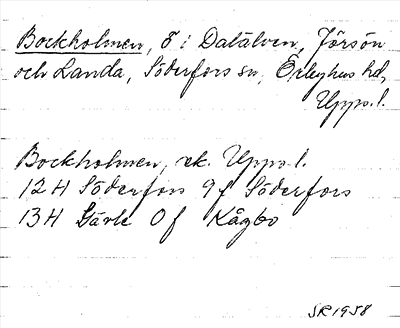 Bockholmen, ö i Dalälven, Jörsön
och Landa, Söderfors sn, Örbyhus hd,
Upps. l.
Bockholmen, ek. Upps. l.
12 H Söderfors 9 f Söderfors
13 H Gävle 0 f Kågbo
SR 1958